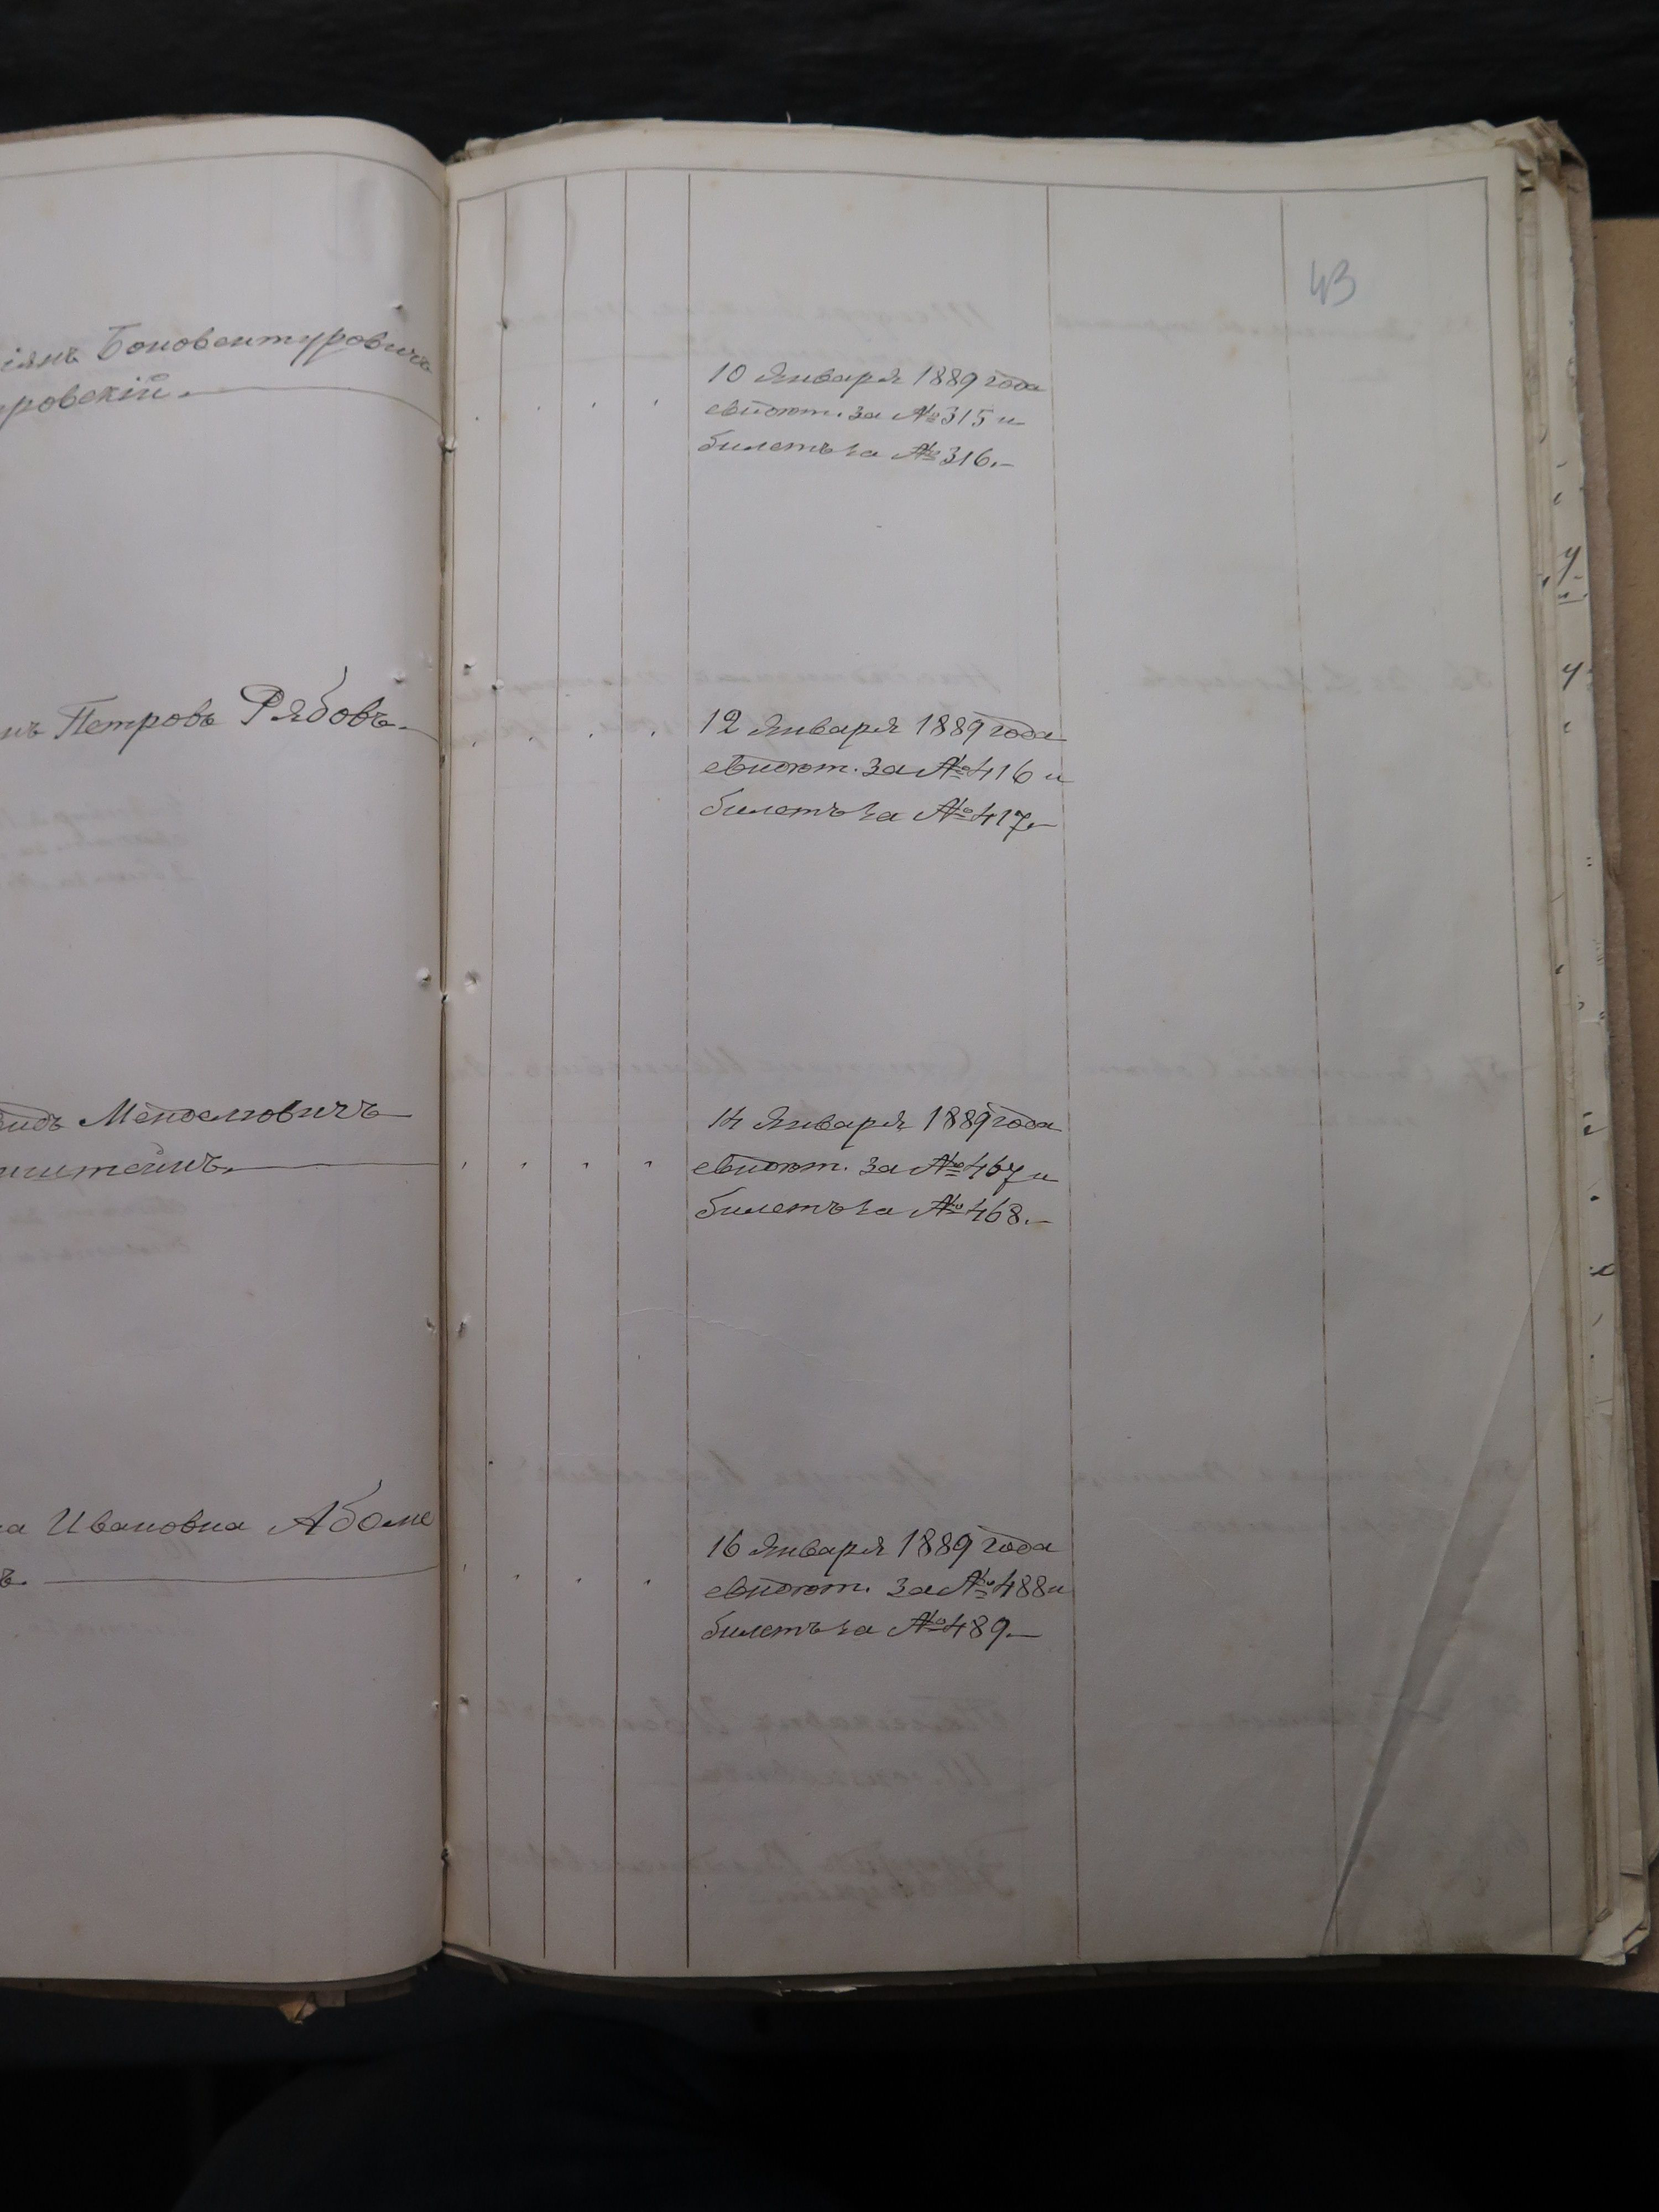 43
іянъ Боновентуровичъ
ровскій.
10 Января 1889 года
свидѣт. за № 315 и
билетъ за № 316.
Петровъ Рябовъ.
12 Января 1889 года
свидѣт. за № 416 и
билетъ за № 417.
видъ Менделювичъ
штейнъ.
14 Января 1889 года
свидѣт. за № 467 и
билетъ за № 468.
на Ивановна Абаме
ъ.
16 Января 1889 года
свидѣт. за № 488 и
билетъ за № 489.